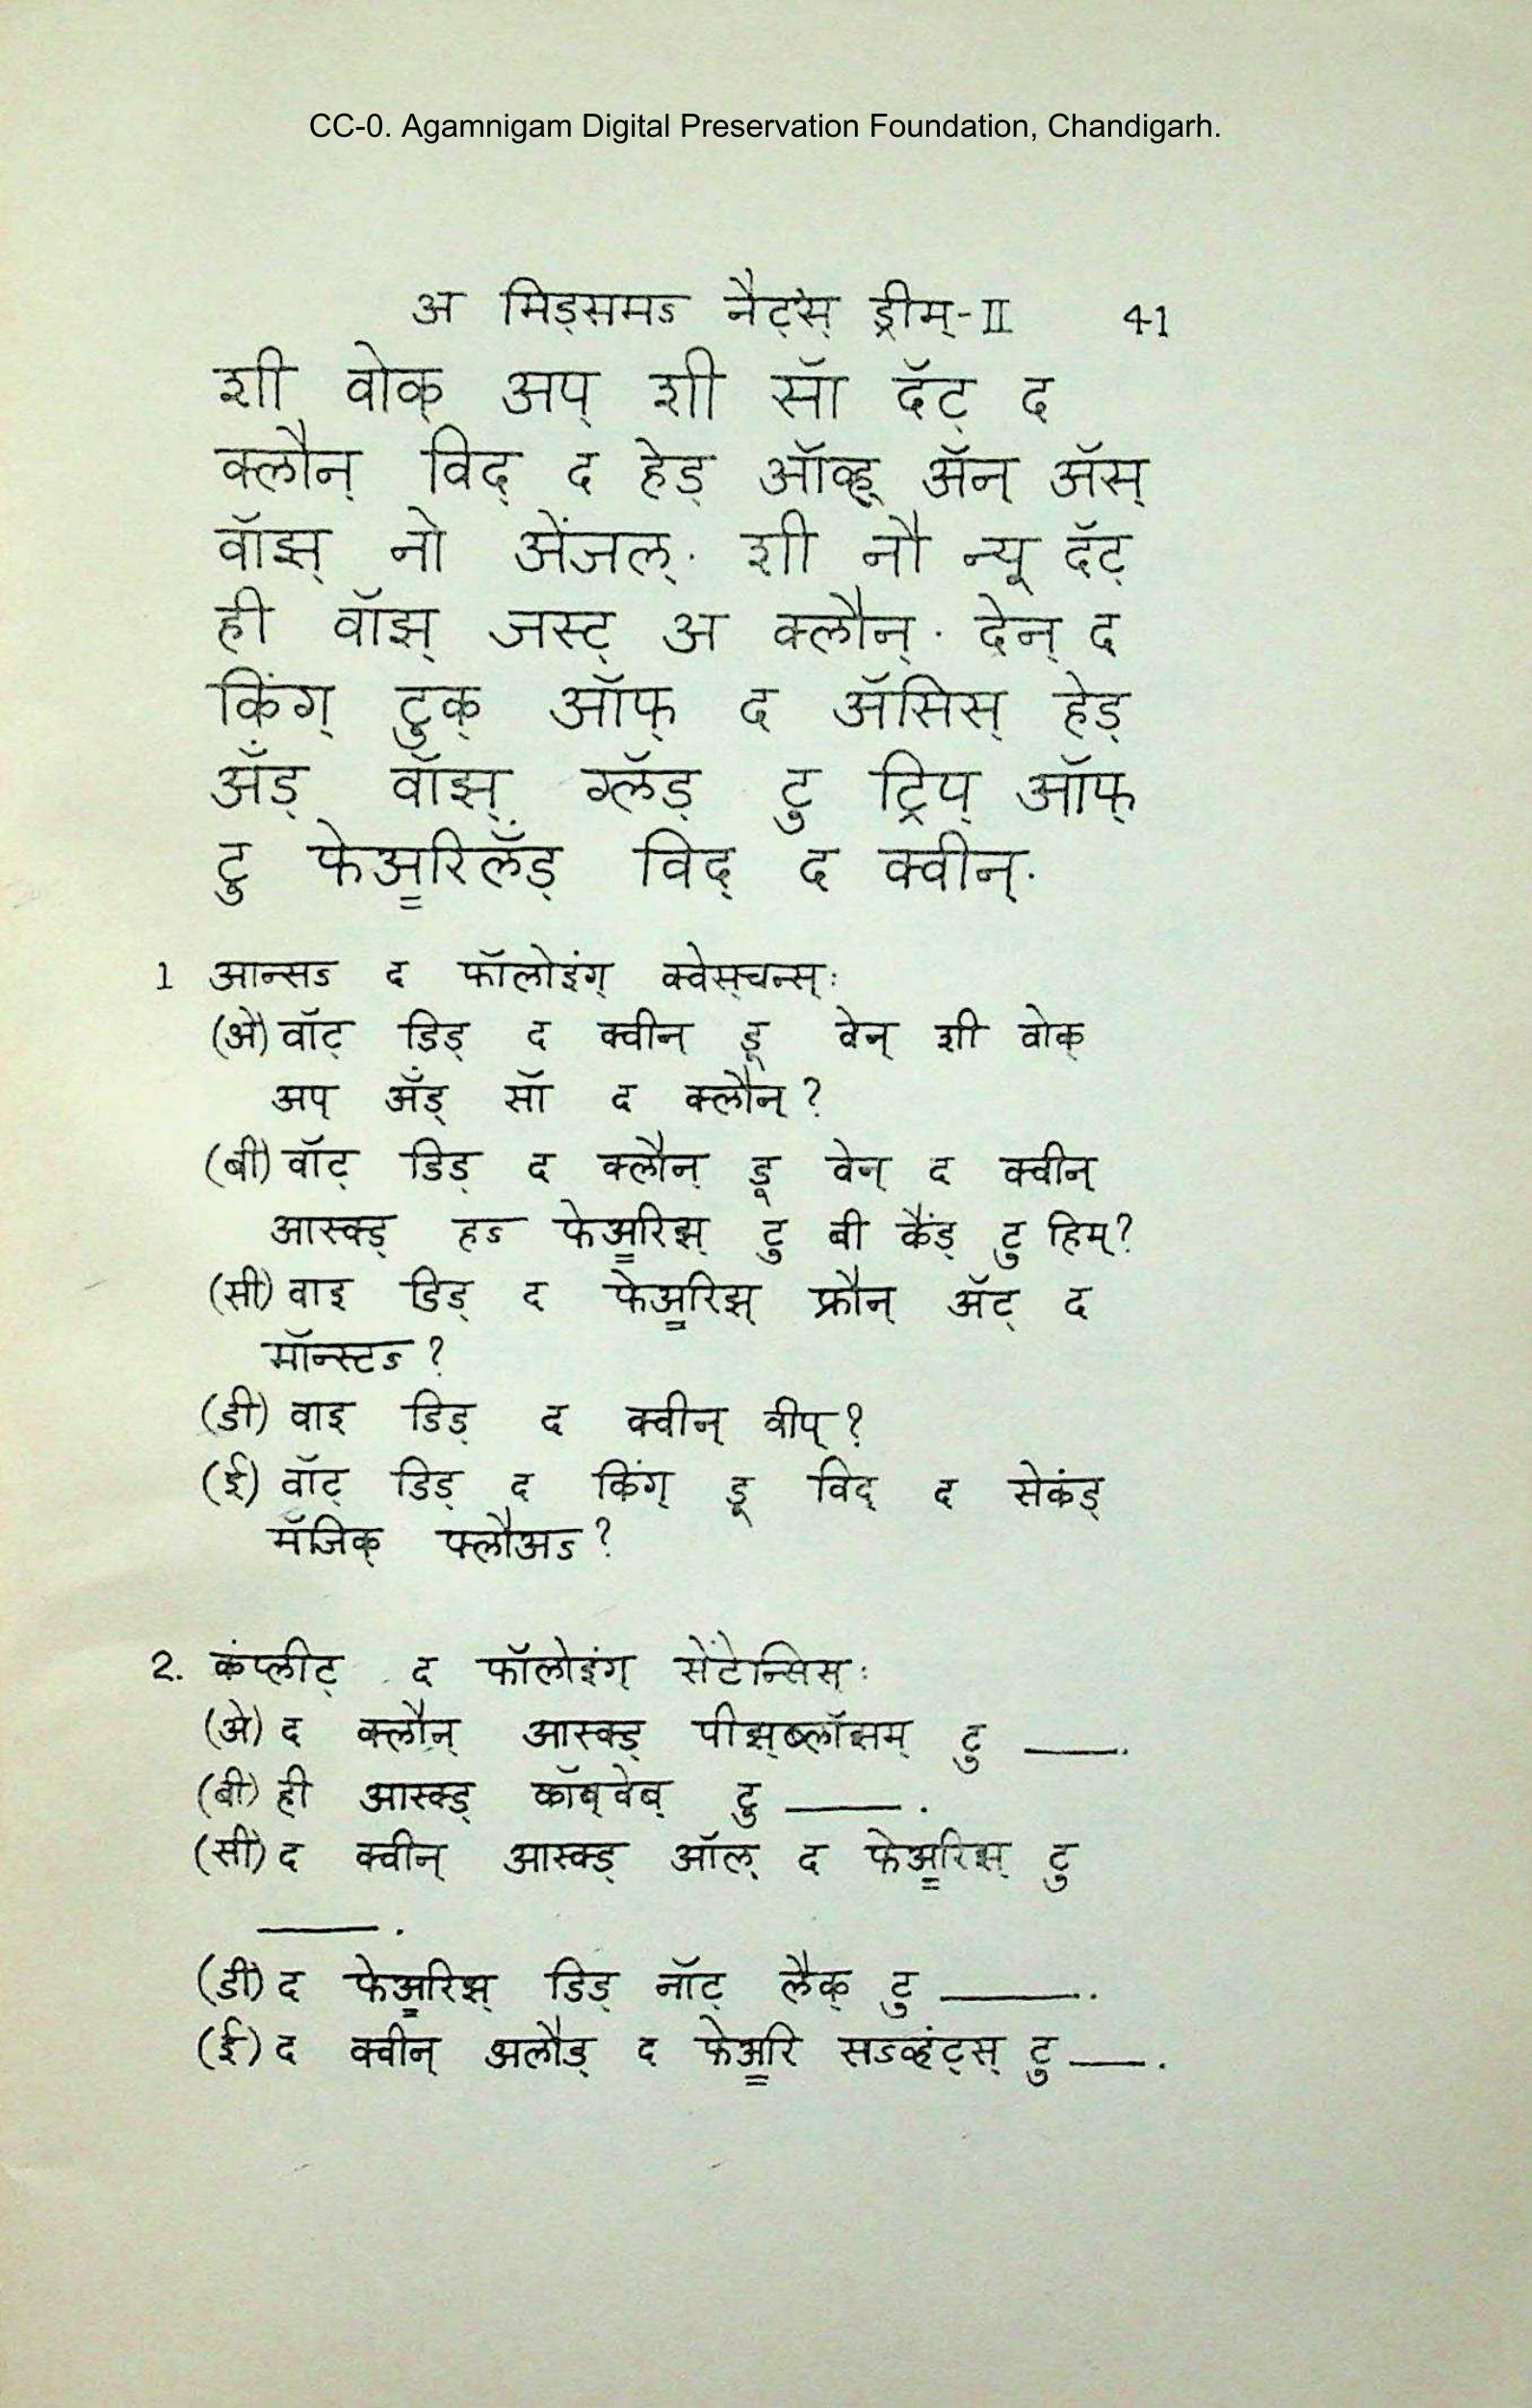 CC-0. Agamnigam Digital Preservation Foundation, Chandigarh.
अ मिड्समऽ नैट्स् ड्रीम्-II 41
शी वोक् अप् शी सॉ दॅट् द
क्लौन् विद् द हेड् ऑव्ह् ॲन् ॲस्
वॉझ् नो अेंजल्. शी नौ न्यू दॅट्
ही वॉझ् जस्ट् अ क्लौन्. देन् द
किंग् टुक् ऑफ् द ॲसिस् हेड्
ॲंड् वॉझ् ग्लॅड् टु ट्रिप् ऑफ्
टु फेअ॒रिलॅंड् विद् द क्वीन्.
1 आन्सऽ द फॉलोइंग् क्वेस्चन्स्:
(अे) वॉट् डिड् द क्वीन् डू वेन् शी वोक्
अप् ॲंड् सॉ द क्लौन्?
(बी) वॉट् डिड् द क्लौन् डू वेन् द क्वीन्
आस्क्ड् हऽ फेअ॒रिझ् टु बी कैंड् टु हिम्?
(सी) वाइ डिड् द फेअ॒रिझ् फ्रौन् ॲट् द
मॉन्स्टऽ?
(डी) वाइ डिड् द क्वीन् वीप्?
(ई) वॉट् डिड् द किंग् डू विद् द सेकंड्
मॅजिक् फ्लौअऽ?
2. कंप्लीट् द फॉलोइंग् सेंटेन्सिस्:
(अे) द क्लौन् आस्क्ड् पीझ्ब्लॉसम् टु ——.
(बी) ही आस्क्ड् कॉब्वेब् टु ——.
(सी) द क्वीन् आस्क्ड् ऑल् द फेअ॒रिझ् टु
——.
(डी) द फेअ॒रिझ् डिड् नॉट् लैक् टु ——.
(ई) द क्वीन् अलौड् द फेअ॒रि सऽव्हंट्स् टु ——.